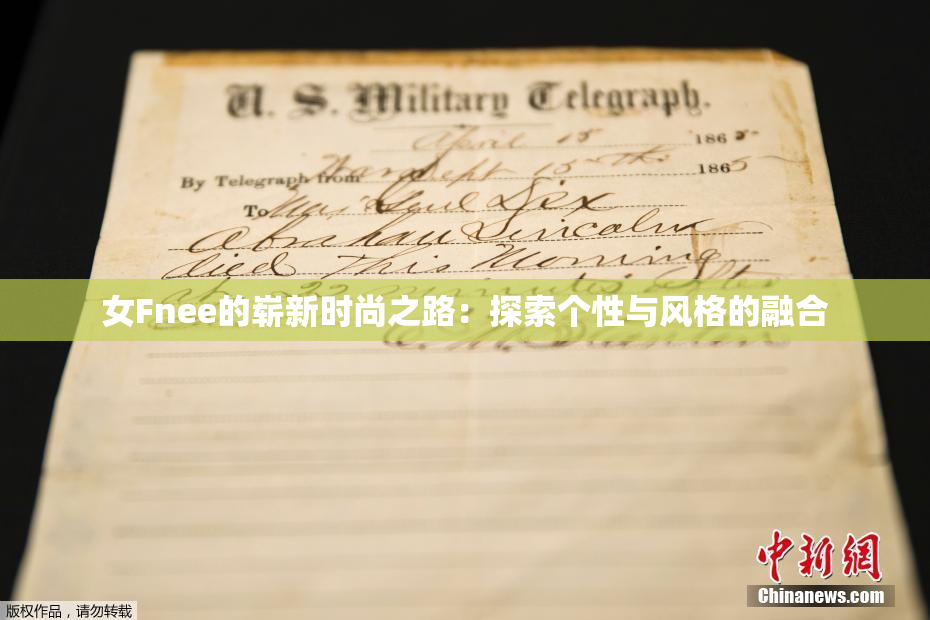 U. S. Military Telegraph.
April 15 1865
By Telegraph from War Dept 15th 1865
To Maj Genl Dix
Abraham Lincoln
died This Morning
at 22 minutes after
女Fnee的崭新时尚之路：探索个性与风格的融合
中新網
Chinanews.com
版权作品，请勿转载